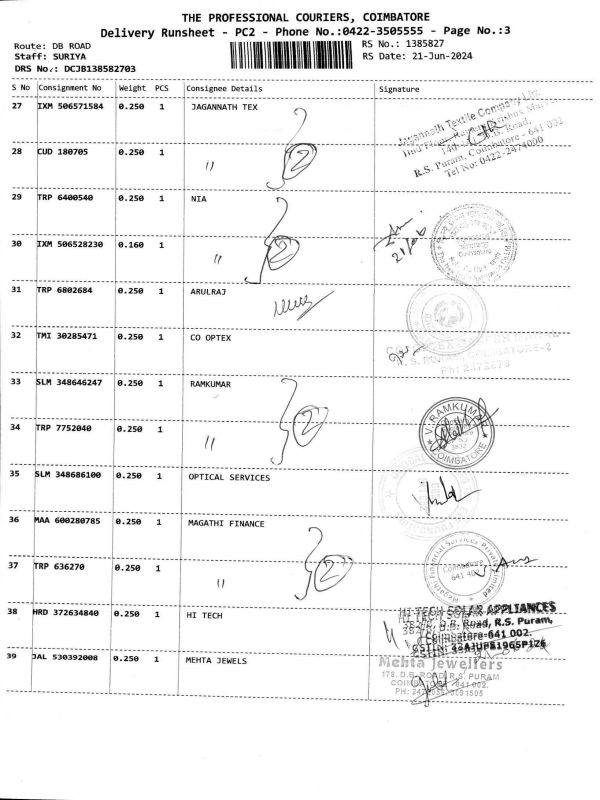 THE PROFESSIONAL COURIERS, COIMBATORE
Delivery Runsheet - PC2 - Phone No.:0422-3505555 - Page No.:3
Route: DB ROAD
RS No.: 1385827
Staff: SURIYA
RS Date: 21-Jun-2024
DRS No.: DCJB138582703
S No Consignment No Weight PCS Consignee Details Signature
27 IXM 506571584 0.250 1 JAGANNATH TEX
Jagannath Textile Company Ltd.
R.S. Puram, Coimbatore - 641 002
Tel No: 0422-2474000
28 CUD 180705 0.250 1 "
(2)
29 TRP 6400540 0.250 1 NIA
21/06
30 IXM 506528230 0.160 1 "
(2)
31 TRP 6802684 0.250 1 ARULRAJ
32 TMI 30285471 0.250 1 CO OPTEX
33 SLM 348646247 0.250 1 RAMKUMAR
34 TRP 7752040 0.250 1 "
(2)
V. RAMKUMAR
COIMBATORE
35 SLM 348686100 0.250 1 OPTICAL SERVICES
36 MAA 600280785 0.250 1 MAGATHI FINANCE
Financial Services Private Limited
Coimbatore
37 TRP 636270 0.250 1 "
(2)
38 HRD 372634840 0.250 1 HI TECH
HI-TECH SOLAR APPLIANCES
D.B. Road, R.S. Puram,
Coimbatore-641 002.
39 JAL 530392008 0.250 1 MEHTA JEWELS
Mehta Jewellers
178, D.B. ROAD, R.S. PURAM
COIMBATORE - 641 002.